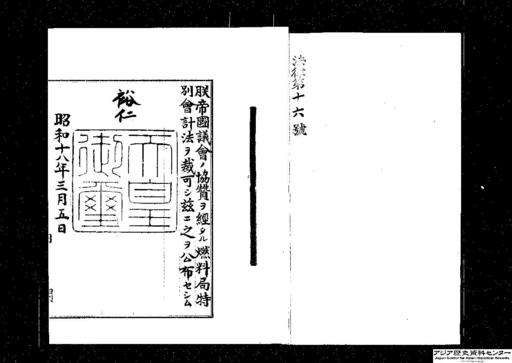 法律第十六號
朕帝國議會ノ協贊ヲ經タル燃料局特
別會計法ヲ裁可シ茲ニ之ヲ公布セシム
裕仁
天皇
御璽
昭和十八年三月五日
アジア歴史資料センター
Japan Center for Asian Historical Records